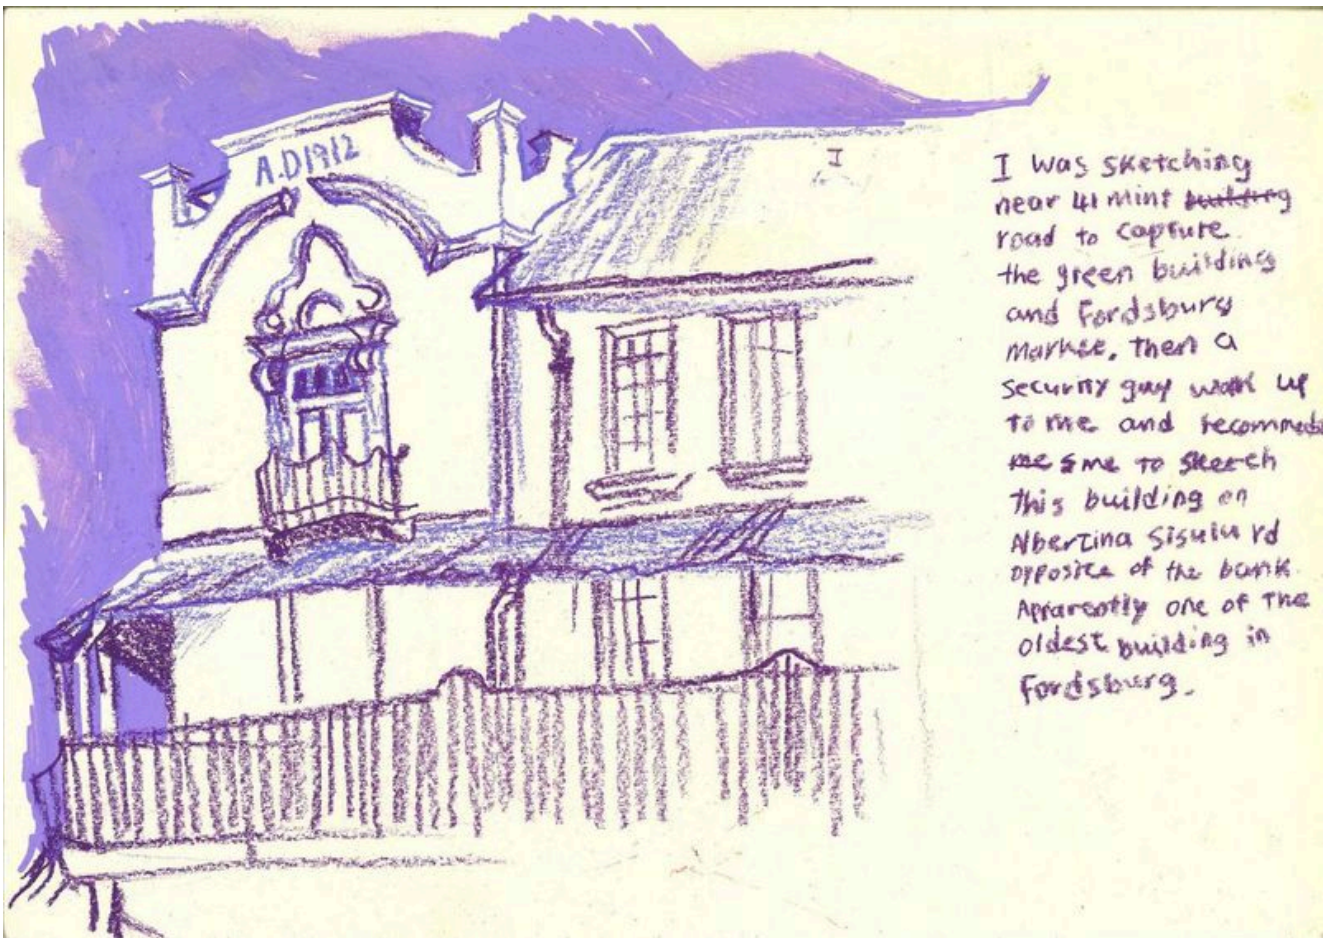 A.D1912
I
I was sketching
near 41 Mint building
road to capture
the green building
and Fordsburg
Market, then a
security guy walk up
to me and recommeds
me to sketch
this building on
Albertina Sisulu rd
opposite of the bank.
Apparently one of the
oldest building in
Fordsburg.